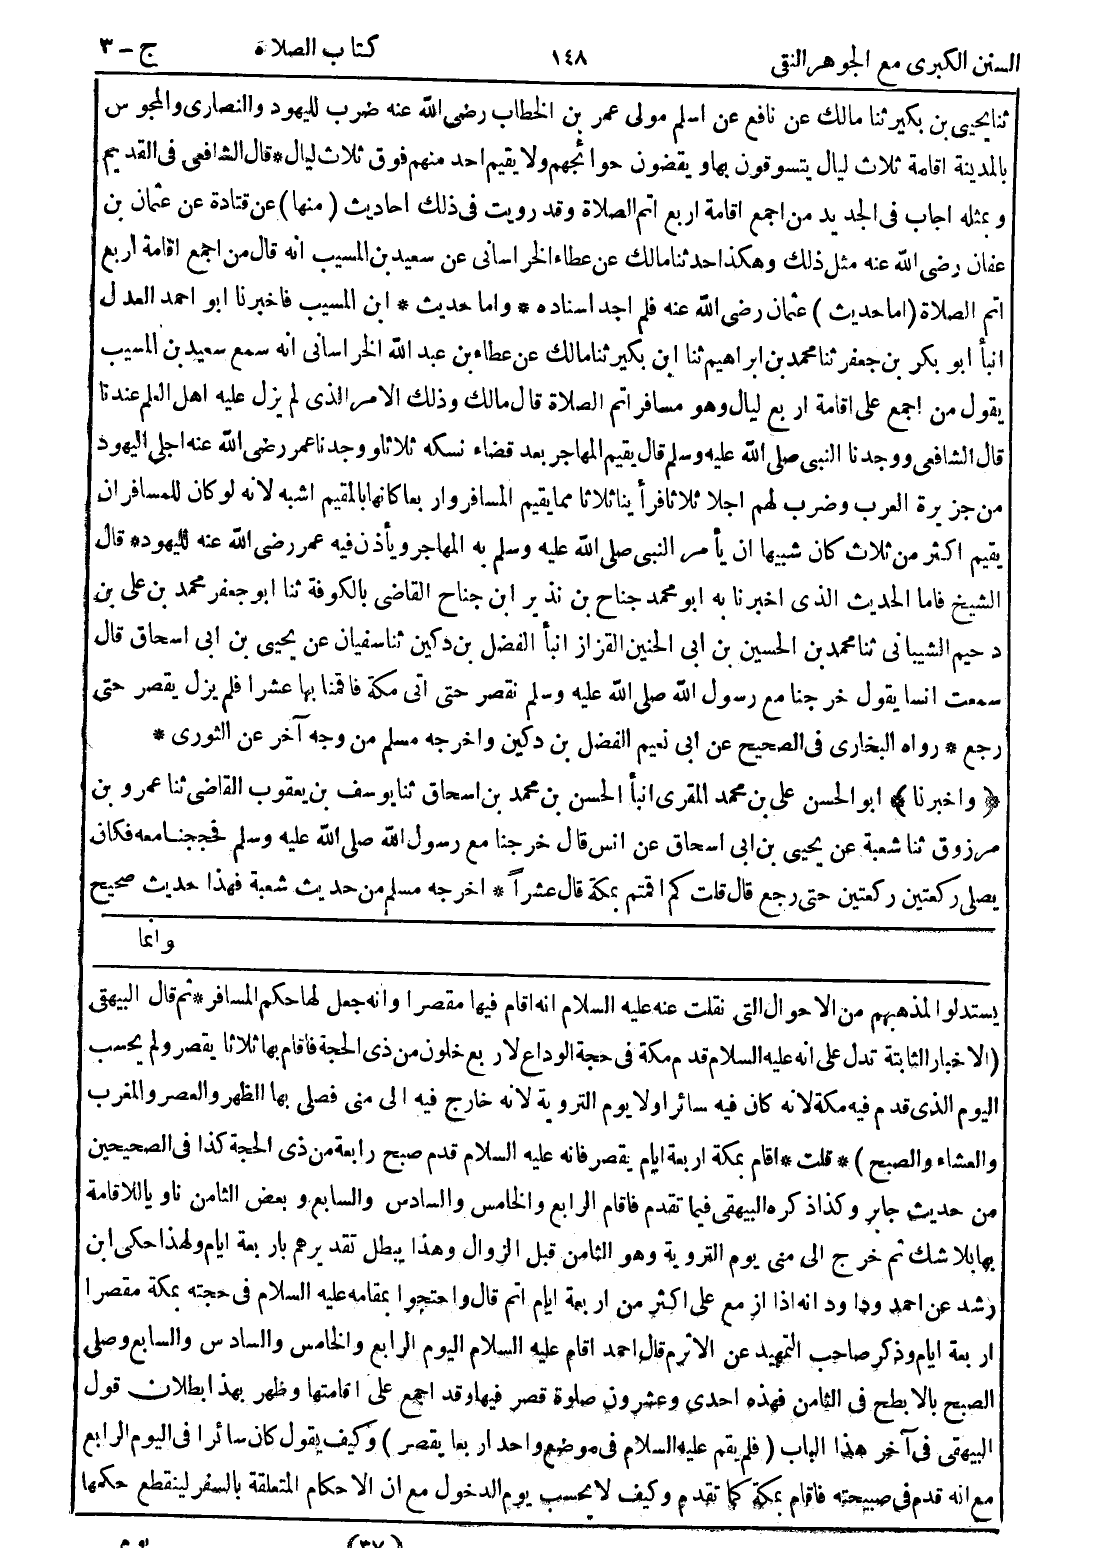 السنن الكبرى مع الجوهر النقى ١٤٨ كتاب الصلاة ج - ٣
ثنا يحيى بن بكير ثنا مالك عن نافع عن اسلم مولى عمر بن الخطاب رضى الله عنه ضرب لليهود والنصارى والمجوس
بالمدينة اقامة ثلاث ليال يتسوقون بها ويقضون حوائجهم ولا يقيم احد منهم فوق ثلاث ليال * قال الشافعى فى القديم
وبمثله اجاب فى الجديد من اجمع اقامة اربع اتم الصلاة وقد رويت فى ذلك احاديث (منها) عن قتادة عن عثمان بن
عفان رضى الله عنه مثل ذلك وهكذا حدثنا مالك عن عطاء الخراسانى عن سعيد بن المسيب انه قال من اجمع اقامة اربع
اتم الصلاة (اما حديث) عثمان رضى الله عنه فلم اجد اسناده * واما حديث * ابن المسيب فاخبرنا ابو احمد العدل
انبأ ابو بكر بن جعفر ثنا محمد بن ابراهيم ثنا ابن بكير ثنا مالك عن عطاء بن عبد الله الخراسانى انه سمع سعيد بن المسيب
يقول من اجمع على اقامة اربع ليال وهو مسافر اتم الصلاة قال مالك وذلك الامر الذى لم يزل عليه اهل العلم عندنا
قال الشافعى ووجدنا النبى صلى الله عليه وسلم قال يقيم المهاجر بعد قضاء نسكه ثلاثا ووجدنا عمر رضى الله عنه اجلى اليهود
من جزيرة العرب وضرب لهم اجلا ثلاثا فرأينا ثلاثا مما يقيم المسافر واربعا كانها بالمقيم اشبه لانه لو كان للمسافر ان
يقيم اكثر من ثلاث كان شبيها ان يأمر النبى صلى الله عليه وسلم به المهاجر ويأذن فيه عمر رضى الله عنه لليهود * قال
الشيخ فاما الحديث الذى اخبرنا به ابو محمد جناح بن نذير ابن جناح القاضى بالكوفة ثنا ابو جعفر محمد بن على بن
دحيم الشيبانى ثنا محمد بن الحسين بن ابى الحنين القزاز انبأ الفضل بن دكين ثنا سفيان عن يحيى بن ابى اسحاق قال
سمعت انسا يقول خرجنا مع رسول الله صلى الله عليه وسلم نقصر حتى اتى مكة فاقمنا بها عشرا فلم يزل يقصر حتى
رجع * رواه البخارى فى الصحيح عن ابى نعيم الفضل بن دكين واخرجه مسلم من وجه آخر عن الثورى *
﴿واخبرنا﴾ ابو الحسن على بن محمد المقرى انبأ الحسن بن محمد بن اسحاق ثنا يوسف بن يعقوب القاضى ثنا عمرو بن
مرزوق ثنا شعبة عن يحيى بن ابى اسحاق عن انس قال خرجنا مع رسول الله صلى الله عليه وسلم فحججنا معه فكان
يصلى ركعتين ركعتين حتى رجع قال قلت كم اقمتم بمكة قال عشراً * اخرجه مسلم من حديث شعبة فهذا حديث صحيح
وانما
يستدلوا لمذهبهم من الاحوال التى نقلت عنه عليه السلام انه اقام فيها مقصرا وانه جعل لها حكم المسافر * ثم قال البيهقى
(الاخبار الثابتة تدل على انه عليه السلام قدم مكة فى حجة الوداع لاربع خلون من ذى الحجة فاقام بها ثلاثا يقصر ولم يحسب
اليوم الذى قدم فيه مكة لانه كان فيه سائرا ولا يوم التروية لانه خارج فيه الى منى فصلى بها الظهر والعصر والمغرب
والعشاء والصبح) * قلت * اقام بمكة اربعة ايام يقصر فانه عليه السلام قدم صبح رابعة من ذى الحجة كذا فى الصحيحين
من حديث جابر وكذا ذكره البيهقى فيما تقدم فاقام الرابع والخامس والسادس والسابع وبعض الثامن ناويا للاقامة
بها بلا شك ثم خرج الى منى يوم التروية وهو الثامن قبل الزوال وهذا يبطل تقديرهم باربعة ايام ولهذا حكى ابن
رشد عن احمد وداود انه اذا ازمع على اكثر من اربعة ايام اتم قال واحتجوا بمقامه عليه السلام فى حجته بمكة مقصرا
اربعة ايام وذكر صاحب التمهيد عن الاثرم قال احمد اقام عليه السلام اليوم الرابع والخامس والسادس والسابع وصلى
الصبح بالابطح فى الثامن فهذه احدى وعشرون صلوة قصر فيها وقد اجمع على اقامتها وظهر بهذا بطلان قول
البيهقى فى آخر هذا الباب (فلم يقم عليه السلام فى موضع واحد اربعا يقصر) وكيف يقول كان سائرا فى اليوم الرابع
مع انه قدم فى صبيحته فاقام بمكة كما تقدم وكيف لا يحسب يوم الدخول مع ان الاحكام المتعلقة بالسفر لينقطع حكمها
(٣٧)